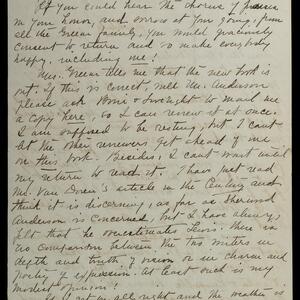 If you could hear the chorus of praises
in your honor, and sorrow at your going, from
all the Greear family, you would graciously
consent to return and so make everybody
happy, including me!
Mrs. Greear tells me that the new book is
out. If this is correct, will Mr. Anderson
please ask Boni & Liveright to mail me
a copy here, so I can review it at once.
I am supposed to be resting, but I can't
let the other reviewers get ahead of me
on this book. Besides, I can't wait until
my return to read it. I have just read
Mr. Van Doren's article in the Century and
think it is discerning, as far as Sherwood
Anderson is concerned, but I have always
felt that he overestimates Lewis. There is
no comparison between the two writers in
depth and truth of vision or in charm and
poetry of expression. At least such is my
modest opinion!
all night and the weather is